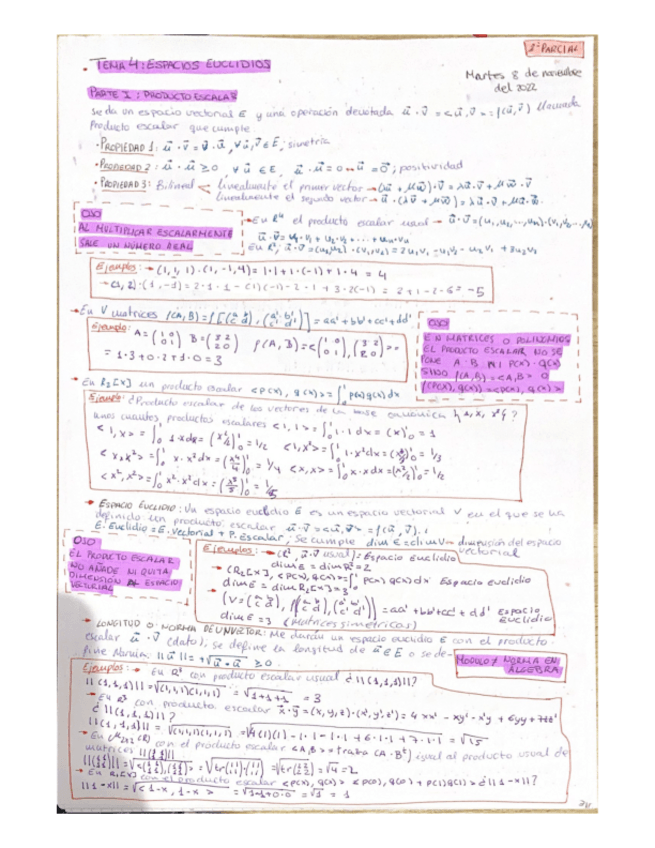 1º PARCIAL
TEMA 4: ESPACIOS EUCLIDIOS
Martes 8 de noviembre del 2022
PARTE I: PRODUCTO ESCALAR
se da un espacio vectorial E y una operación denotada u⃗·v⃗ = <u⃗,v⃗> = f(u⃗,v⃗) llamada
Producto escalar que cumple
· PROPIEDAD 1: u⃗·v⃗ = v⃗·u⃗, ∀u⃗,v⃗ ∈ E; simetría
· PROPIEDAD 2: u⃗·u⃗ ≥ 0, ∀ u⃗ ∈ E, u⃗·u⃗ = 0 → u⃗ = 0⃗; positividad
· PROPIEDAD 3: Bilineal
linealmente el primer vector → (λu⃗ + μw⃗)·v⃗ = λu⃗·v⃗ + μw⃗·v⃗
linealmente el segundo vector → u⃗·(λv⃗ + μw⃗) = λu⃗·v⃗ + μu⃗·w⃗
OJO
AL MULTIPLICAR ESCALARMENTE
SALE UN NÚMERO REAL
→ En Rⁿ el producto escalar usual → u⃗·v⃗ = (u₁, u₂, ..., uₙ)·(v₁, v₂, ..., vₙ)
u⃗·v⃗ = u₁·v₁ + u₂·v₂ + ... + uₙvₙ
En R², u⃗·v⃗ = (u₁,u₂)·(v₁,v₂) = 2u₁v₁ - u₁v₂ - u₂v₁ + 3u₂v₂
Ejemplos: → (1, 1, 1)·(1, -1, 4) = 1·1 + 1·(-1) + 1·4 = 4
→ (1, 2)·(1, -1) = 2·1·1 - 1(-1) - 2·1 + 3·2(-1) = 2+1-2-6 = -5
→ En V matrices f(A,B) = f[(a b / c d), (a' b' / c' d')] = aa' + bb' + cc' + dd'
Ejemplo: A = (1 0 / 0 1) B = (3 2 / 2 0) f(A,B) = <(1 0 / 0 1), (3 2 / 2 0)> =
= 1·3 + 0·2 + 1·0 = 3
OJO
EN MATRICES O POLINOMIOS
EL PRODUCTO ESCALAR NO SE
PONE A·B NI P(x)·Q(x)
SINO f(A,B) = <A,B> O
f(P(x), q(x)) = <P(x), q(x)>
→ En R₂[x] un producto escalar <P(x), q(x)> = ∫₀¹ p(x)q(x)dx
Ejemplo: ¿Producto escalar de los vectores de la base canónica {1, x, x²}?
unos cuantos productos escalares <1,1> = ∫₀¹ 1·1dx = (x)₀¹ = 1
<1,x> = ∫₀¹ 1·xdx = (x²/2)₀¹ = 1/2 <1,x²> = ∫₀¹ 1·x²dx = (x³/3)₀¹ = 1/3
<x,x²> = ∫₀¹ x·x²dx = (x⁴/4)₀¹ = 1/4 <x,x> = ∫₀¹ x·xdx = (x²/2)₀¹ = 1/2
<x²,x²> = ∫₀¹ x²·x²dx = (x⁵/5)₀¹ = 1/5
→ ESPACIO EUCLIDIO: Un espacio euclidio E es un espacio vectorial V en el que se ha
definido un producto escalar u⃗·v⃗ = <u⃗,v⃗> = f(u⃗,v⃗).
E. Euclidio = E. Vectorial + P. Escalar; se cumple dim E = dim V → dimensión del espacio vectorial
OJO
EL PRODUCTO ESCALAR
NO AÑADE NI QUITA
DIMENSIÓN AL ESPACIO
VECTORIAL
Ejemplos: → (R², u⃗·v⃗ usual) = Espacio Euclidio
dim E = dim R² = 2
→ (R₂[x], <P(x), q(x)> = ∫₀¹ P(x) q(x) dx Espacio Euclidio
dim E = dim R₂[x] = 3
→ (V = (a b / c d), f((a b / c d), (a' b' / c' d'))) = aa' + bb' + cc' + dd' Espacio Euclidio
dim E = 3 (matrices simétricas)
→ LONGITUD O NORMA DE UN VECTOR: Me darán un espacio euclidio E con el producto
escalar u⃗·v⃗ (dato); se define la longitud de u⃗ ∈ E o se de-
fine norma: ||u⃗|| = +√u⃗·u⃗ ≥ 0.
MODULO ≠ NORMA EN
ÁLGEBRA
Ejemplos: → En R³ con producto escalar usual ¿||(1,1,1)||?
||(1,1,1)|| = √(1,1,1)(1,1,1) = √1+1+1 = 3
→ En R³ con producto escalar x⃗·y⃗ = (x,y,z)·(x',y',z') = 4xx' - xy' - x'y + 6yy' + 7zz'
¿||(1,1,1)||?
||(1,1,1)|| = √(1,1,1)(1,1,1) = √4(1)(1) - 1·1 - 1·1 + 6·1·1 + 7·1·1 = √15
→ En M₂ₓ₂(R) con el producto escalar <A,B> = traza (A·Bᵗ) igual al producto usual de
matrices ||(1 1 / 1 1)||
||(1 1 / 1 1)|| = √<(1 1 / 1 1),(1 1 / 1 1)> = √tr(1 1 / 1 1)·(1 1 / 1 1) = √tr(2 2 / 2 2) = √4 = 2
→ En R₁[x] con el producto escalar <P(x), q(x)> = P(0)q(0) + P(1)q(1) ¿||1-x||?
||1-x|| = √<1-x, 1-x> = √1·1+0·0 = √1 = 1